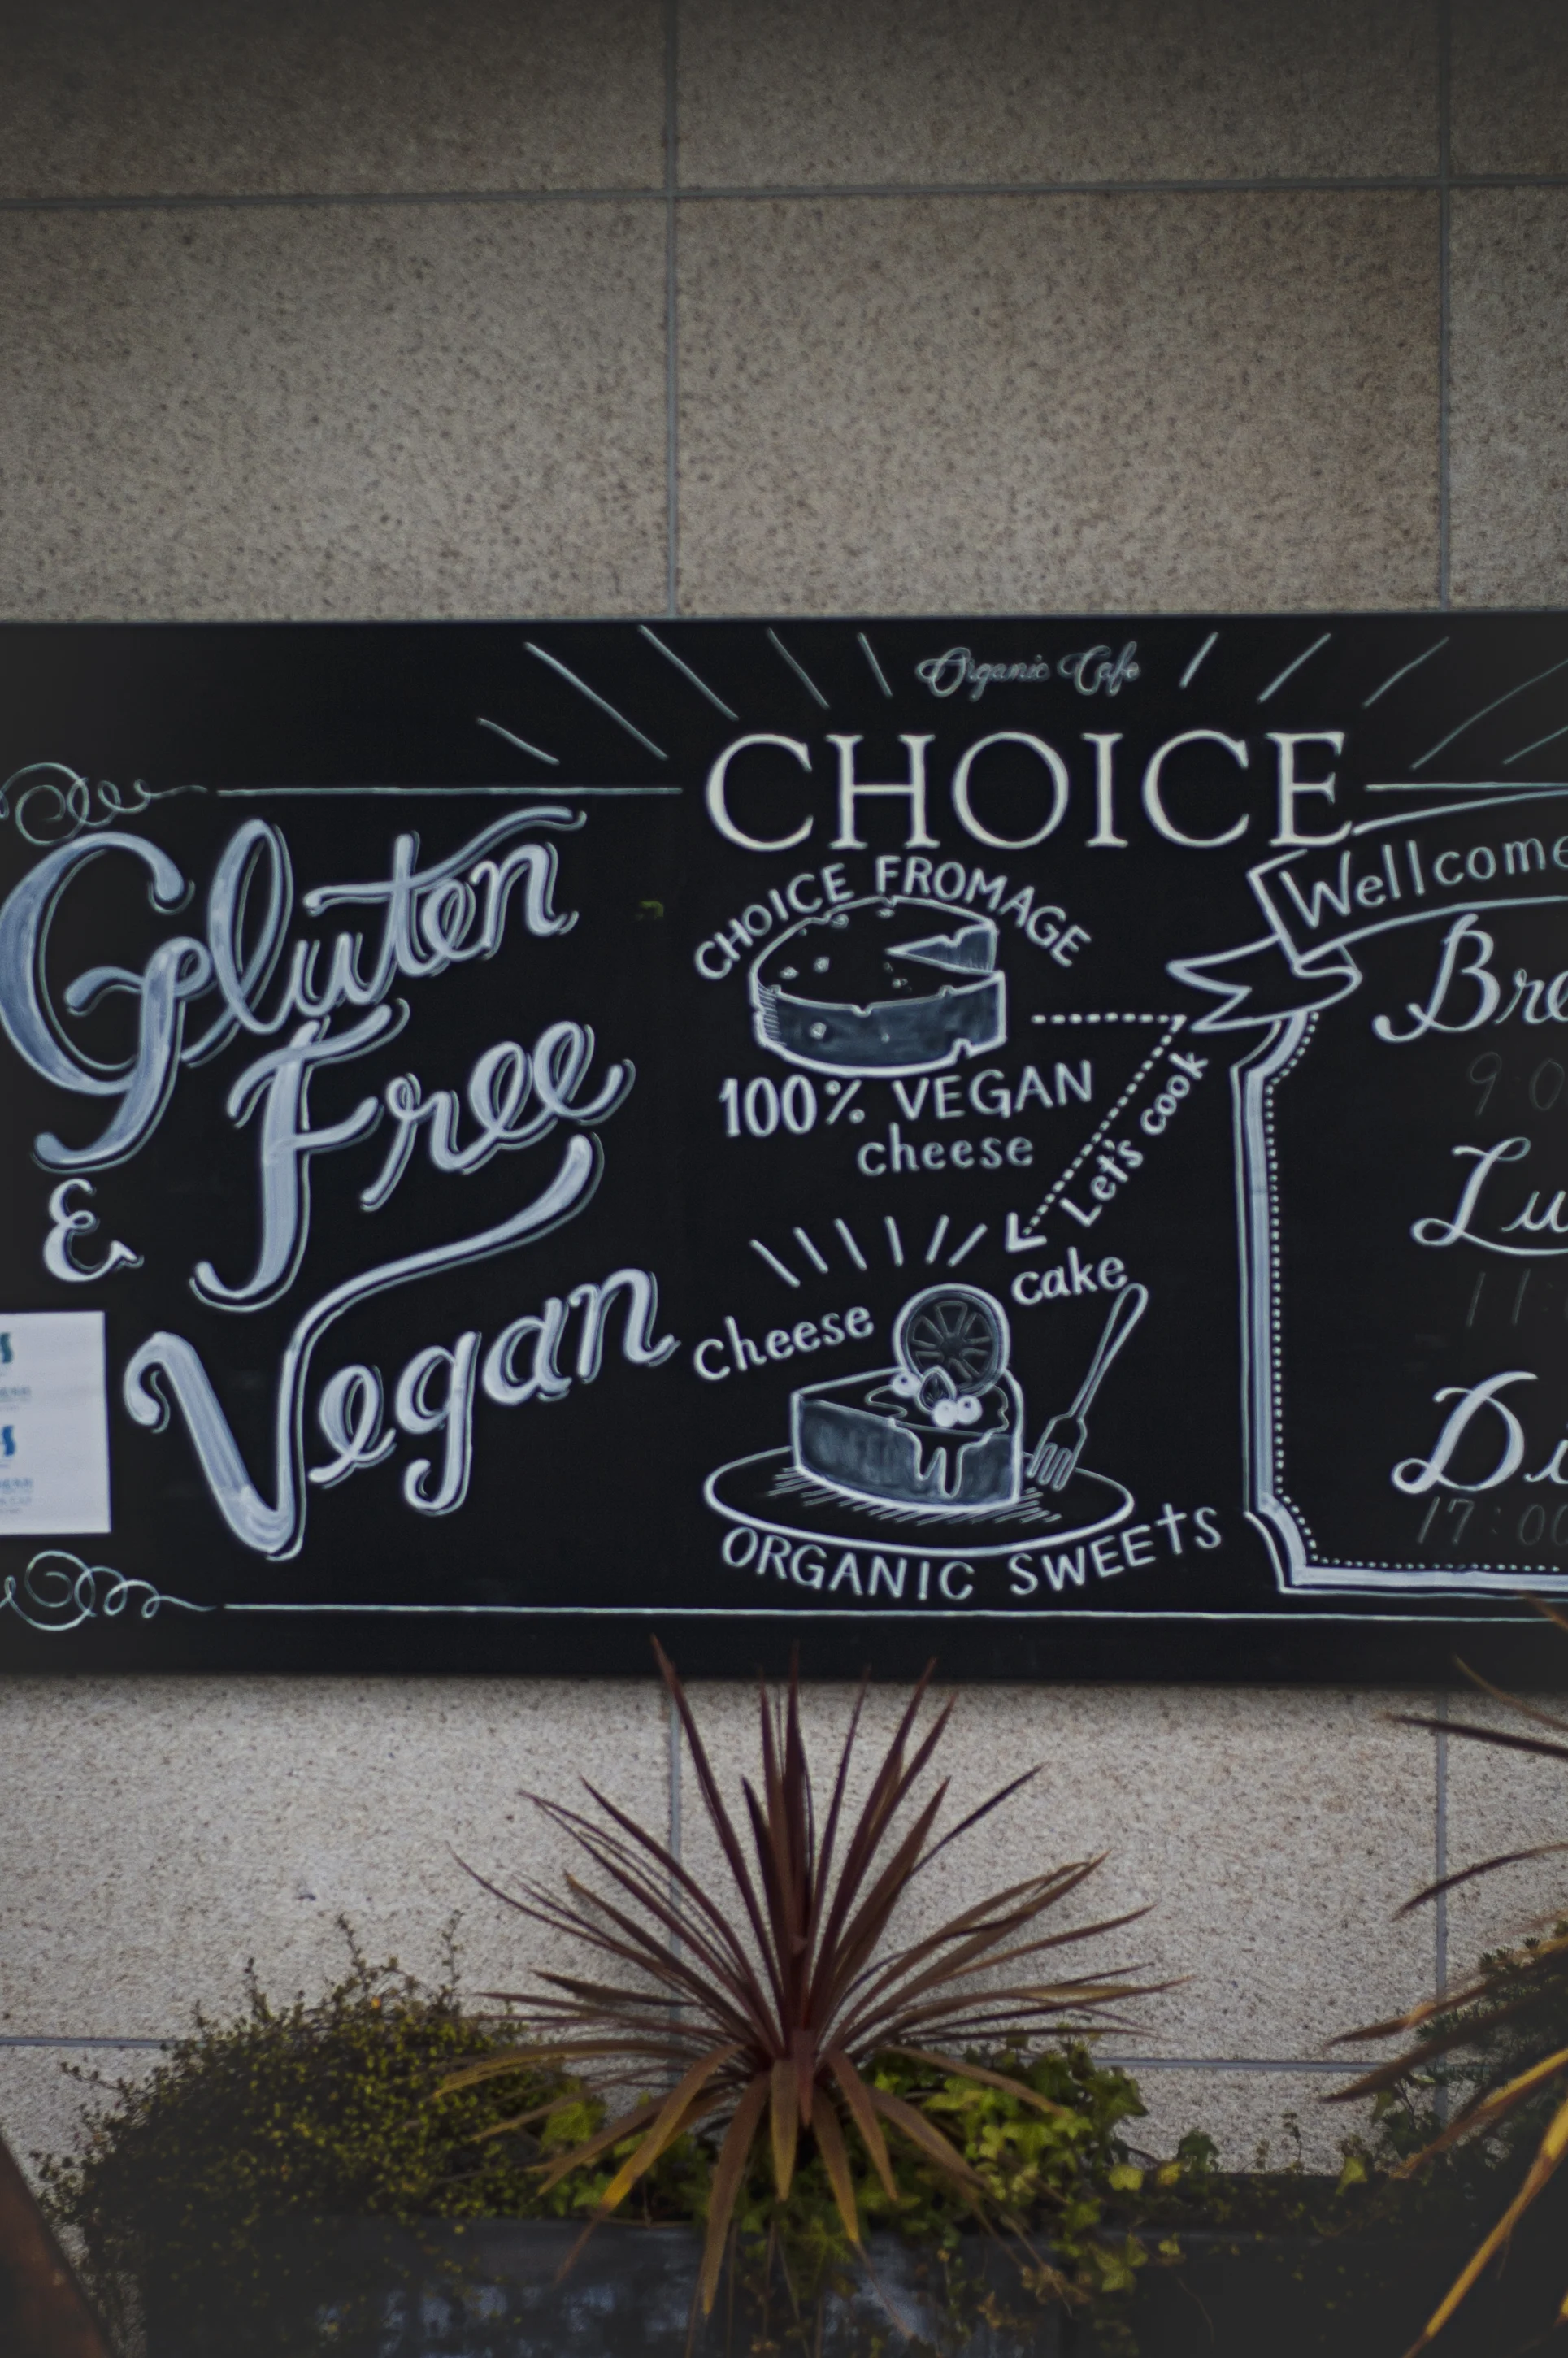 Organic Cafe
CHOICE
Gluten
Free
&
Vegan
CHOICE FROMAGE
100% VEGAN
cheese
Let's cook
cheese cake
ORGANIC SWEETS
Wellcome
Bre
9:0
Lu
11:
Di
17:00